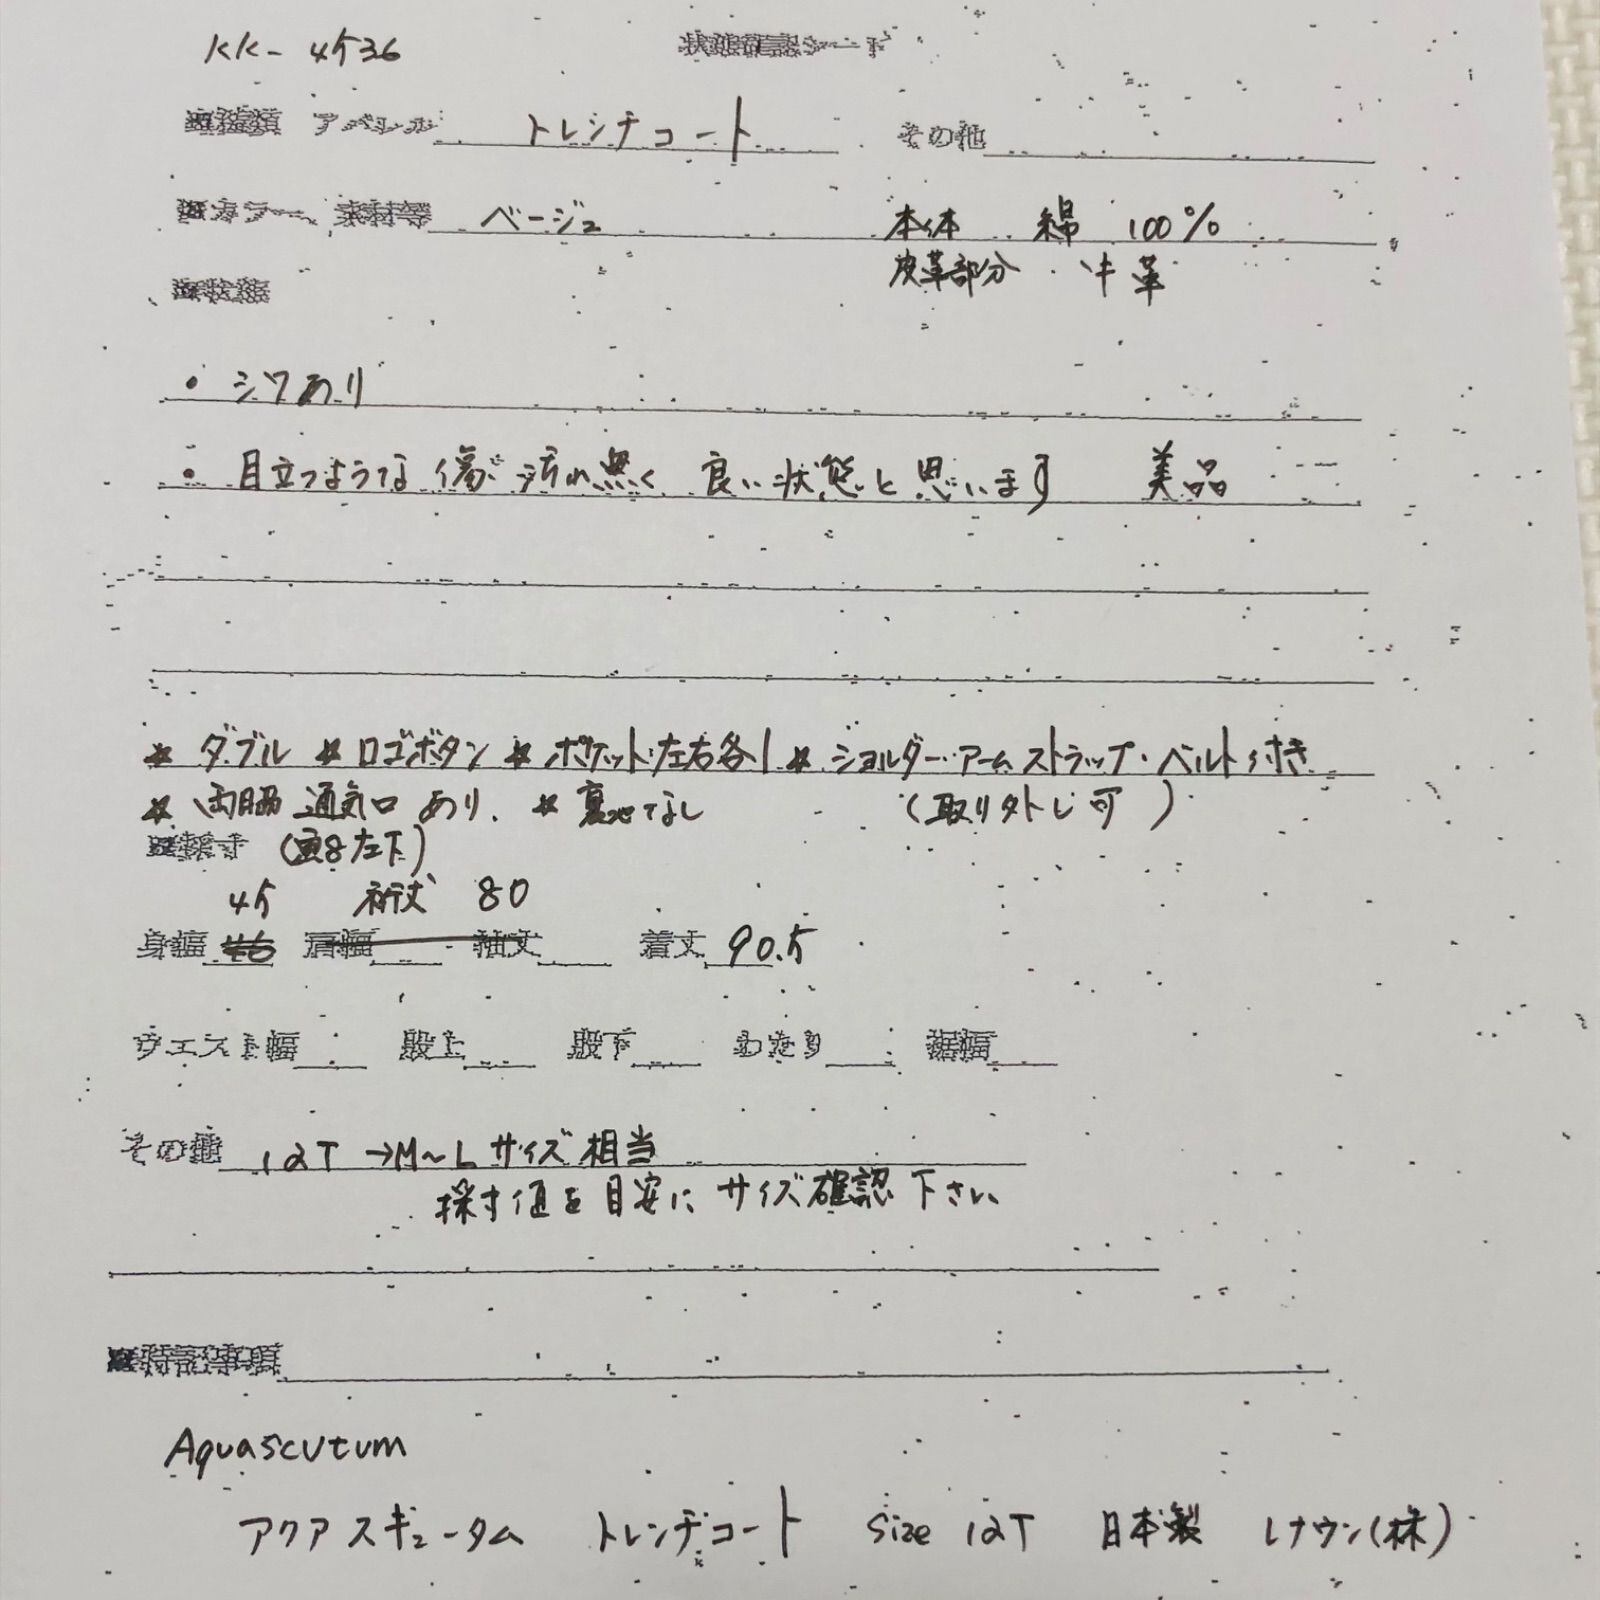 KK-4536 状態確認シート
■種類 アパレル トレンチコート その他
■カラー、素材等 ベージュ 本体 綿 100%
皮革部分 牛革
■状態
・シワあり
・目立つような傷・汚れ無く 良い状態と思います 美品
* ダブル * ロゴボタン * ポケット左右各1 * ショルダー・アームストラップ・ベルト付き
* 両脇 通気口 あり. * 裏地なし (取り外し可)
■採寸 (直8左下)
45 裄丈 80
身幅 46 肩幅 袖丈 着丈 90.5
ウエスト幅 股上 股下 わたり 裾幅
その他 12T →M~Lサイズ相当
採寸値を目安にサイズ確認下さい
■特記事項
Aquascutum
アクアスキュータム トレンチコート size 12T 日本製 レナウン(株)